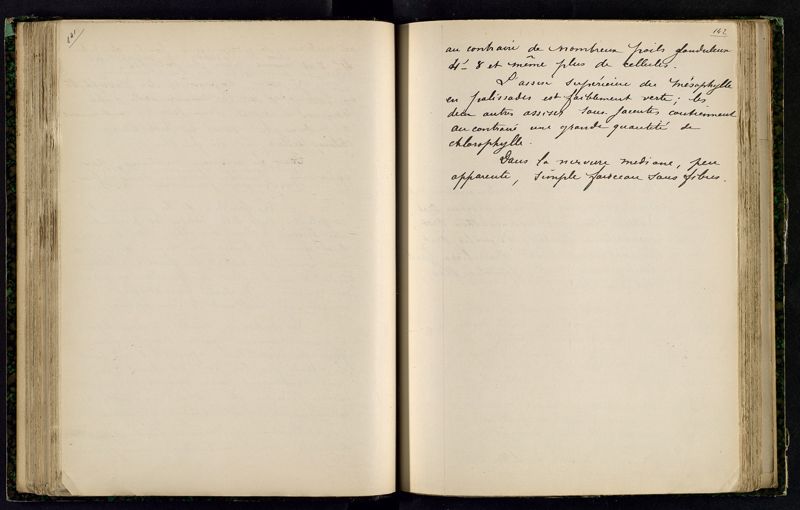 141
142
au contraire de nombreux poils glanduleux
4, 8 et même plus de cellules.
L'assise supérieure du mésophylle
en palissades est faiblement verte; les
deux autres assises sous jacentes contiennent
au contraire une grande quantité de
chlorophylle.
Dans la nervure mediane, peu
apparente, simple faisceau sans fibres.